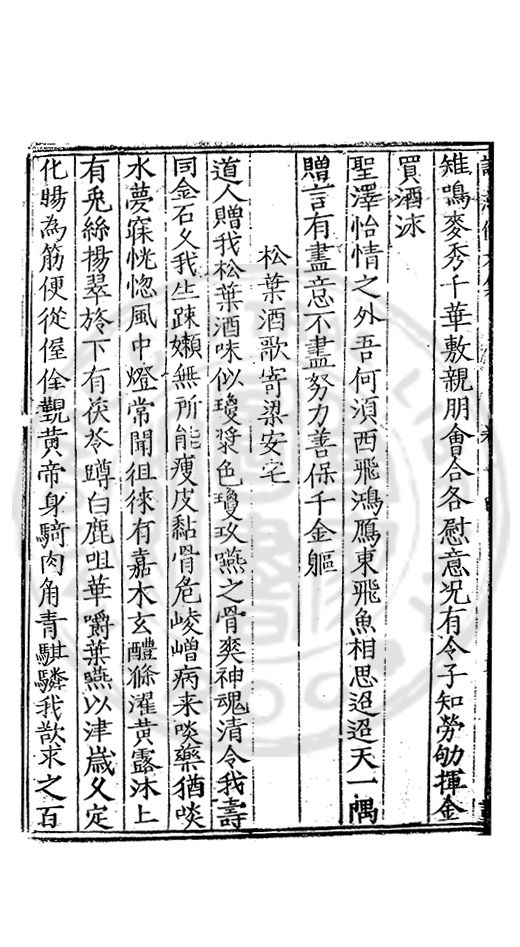 雉鳴麥秀千華敷親朋會合各慰意況有令子知勞劬揮金
買酒沫
聖澤怡情之外吾何湏西飛鴻鴈東飛魚相思迢迢天一隅
贈言有盡意不盡努力善保千金軀
松葉酒歌寄梁安宅
道人贈我松葉酒味似瓊漿色瓊玖嚥之骨爽神魂清令我壽
同金石久我生踈嬾無所能瘦皮黏骨危崚嶒病来啖藥猶啖
水夢寐恍惚風中燈常聞徂徠有嘉木玄醴滌濯黃露沐上
有兎絲揚翠旍下有茯苓蹲白鹿咀華嚼葉嚥以津嵗久定
化腸為筋便從偓佺覲黃帝身騎肉角青騏驎我欲求之百